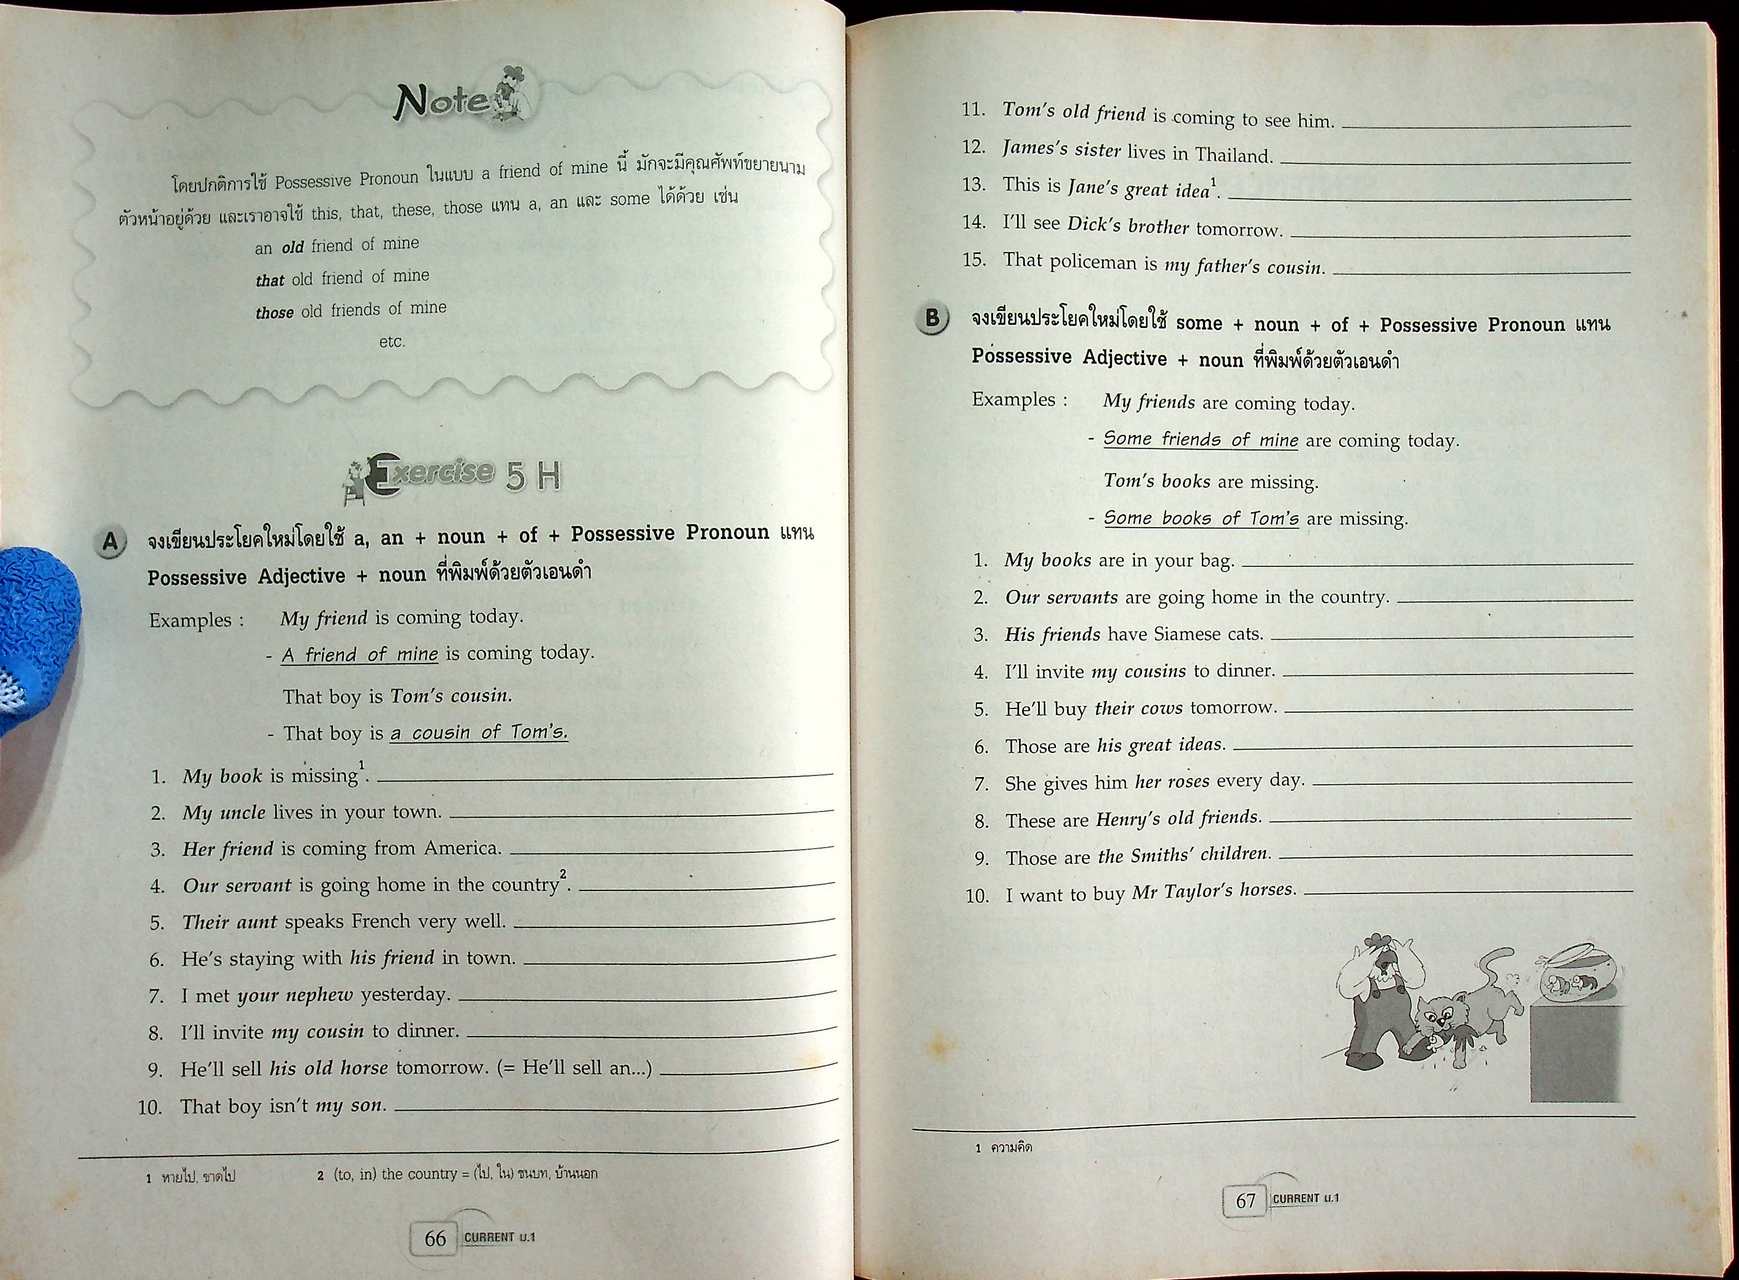 Note
โดยปกติการใช้ Possessive Pronoun ในแบบ a friend of mine นี้ มักจะมีคุณศัพท์ขยายนาม
ตัวหน้าอยู่ด้วย และเราอาจใช้ this, that, these, those แทน a, an และ some ได้ด้วย เช่น
an old friend of mine
that old friend of mine
those old friends of mine
etc.
Exercise 5 H
A จงเขียนประโยคใหม่โดยใช้ a, an + noun + of + Possessive Pronoun แทน
Possessive Adjective + noun ที่พิมพ์ด้วยตัวเอนดำ
Examples : My friend is coming today.
- A friend of mine is coming today.
That boy is Tom's cousin.
- That boy is a cousin of Tom's.
1. My book is missing¹.
2. My uncle lives in your town.
3. Her friend is coming from America.
4. Our servant is going home in the country².
5. Their aunt speaks French very well.
6. He's staying with his friend in town.
7. I met your nephew yesterday.
8. I'll invite my cousin to dinner.
9. He'll sell his old horse tomorrow. (= He'll sell an...)
10. That boy isn't my son.
1 หายไป, ขาดไป 2 (to, in) the country = (ไป, ใน) ชนบท, บ้านนอก
66 CURRENT ม.1
11. Tom's old friend is coming to see him.
12. James's sister lives in Thailand.
13. This is Jane's great idea¹.
14. I'll see Dick's brother tomorrow.
15. That policeman is my father's cousin.
B จงเขียนประโยคใหม่โดยใช้ some + noun + of + Possessive Pronoun แทน
Possessive Adjective + noun ที่พิมพ์ด้วยตัวเอนดำ
Examples : My friends are coming today.
- Some friends of mine are coming today.
Tom's books are missing.
- Some books of Tom's are missing.
1. My books are in your bag.
2. Our servants are going home in the country.
3. His friends have Siamese cats.
4. I'll invite my cousins to dinner.
5. He'll buy their cows tomorrow.
6. Those are his great ideas.
7. She gives him her roses every day.
8. These are Henry's old friends.
9. Those are the Smiths' children.
10. I want to buy Mr Taylor's horses.
1 ความคิด
67 CURRENT ม.1